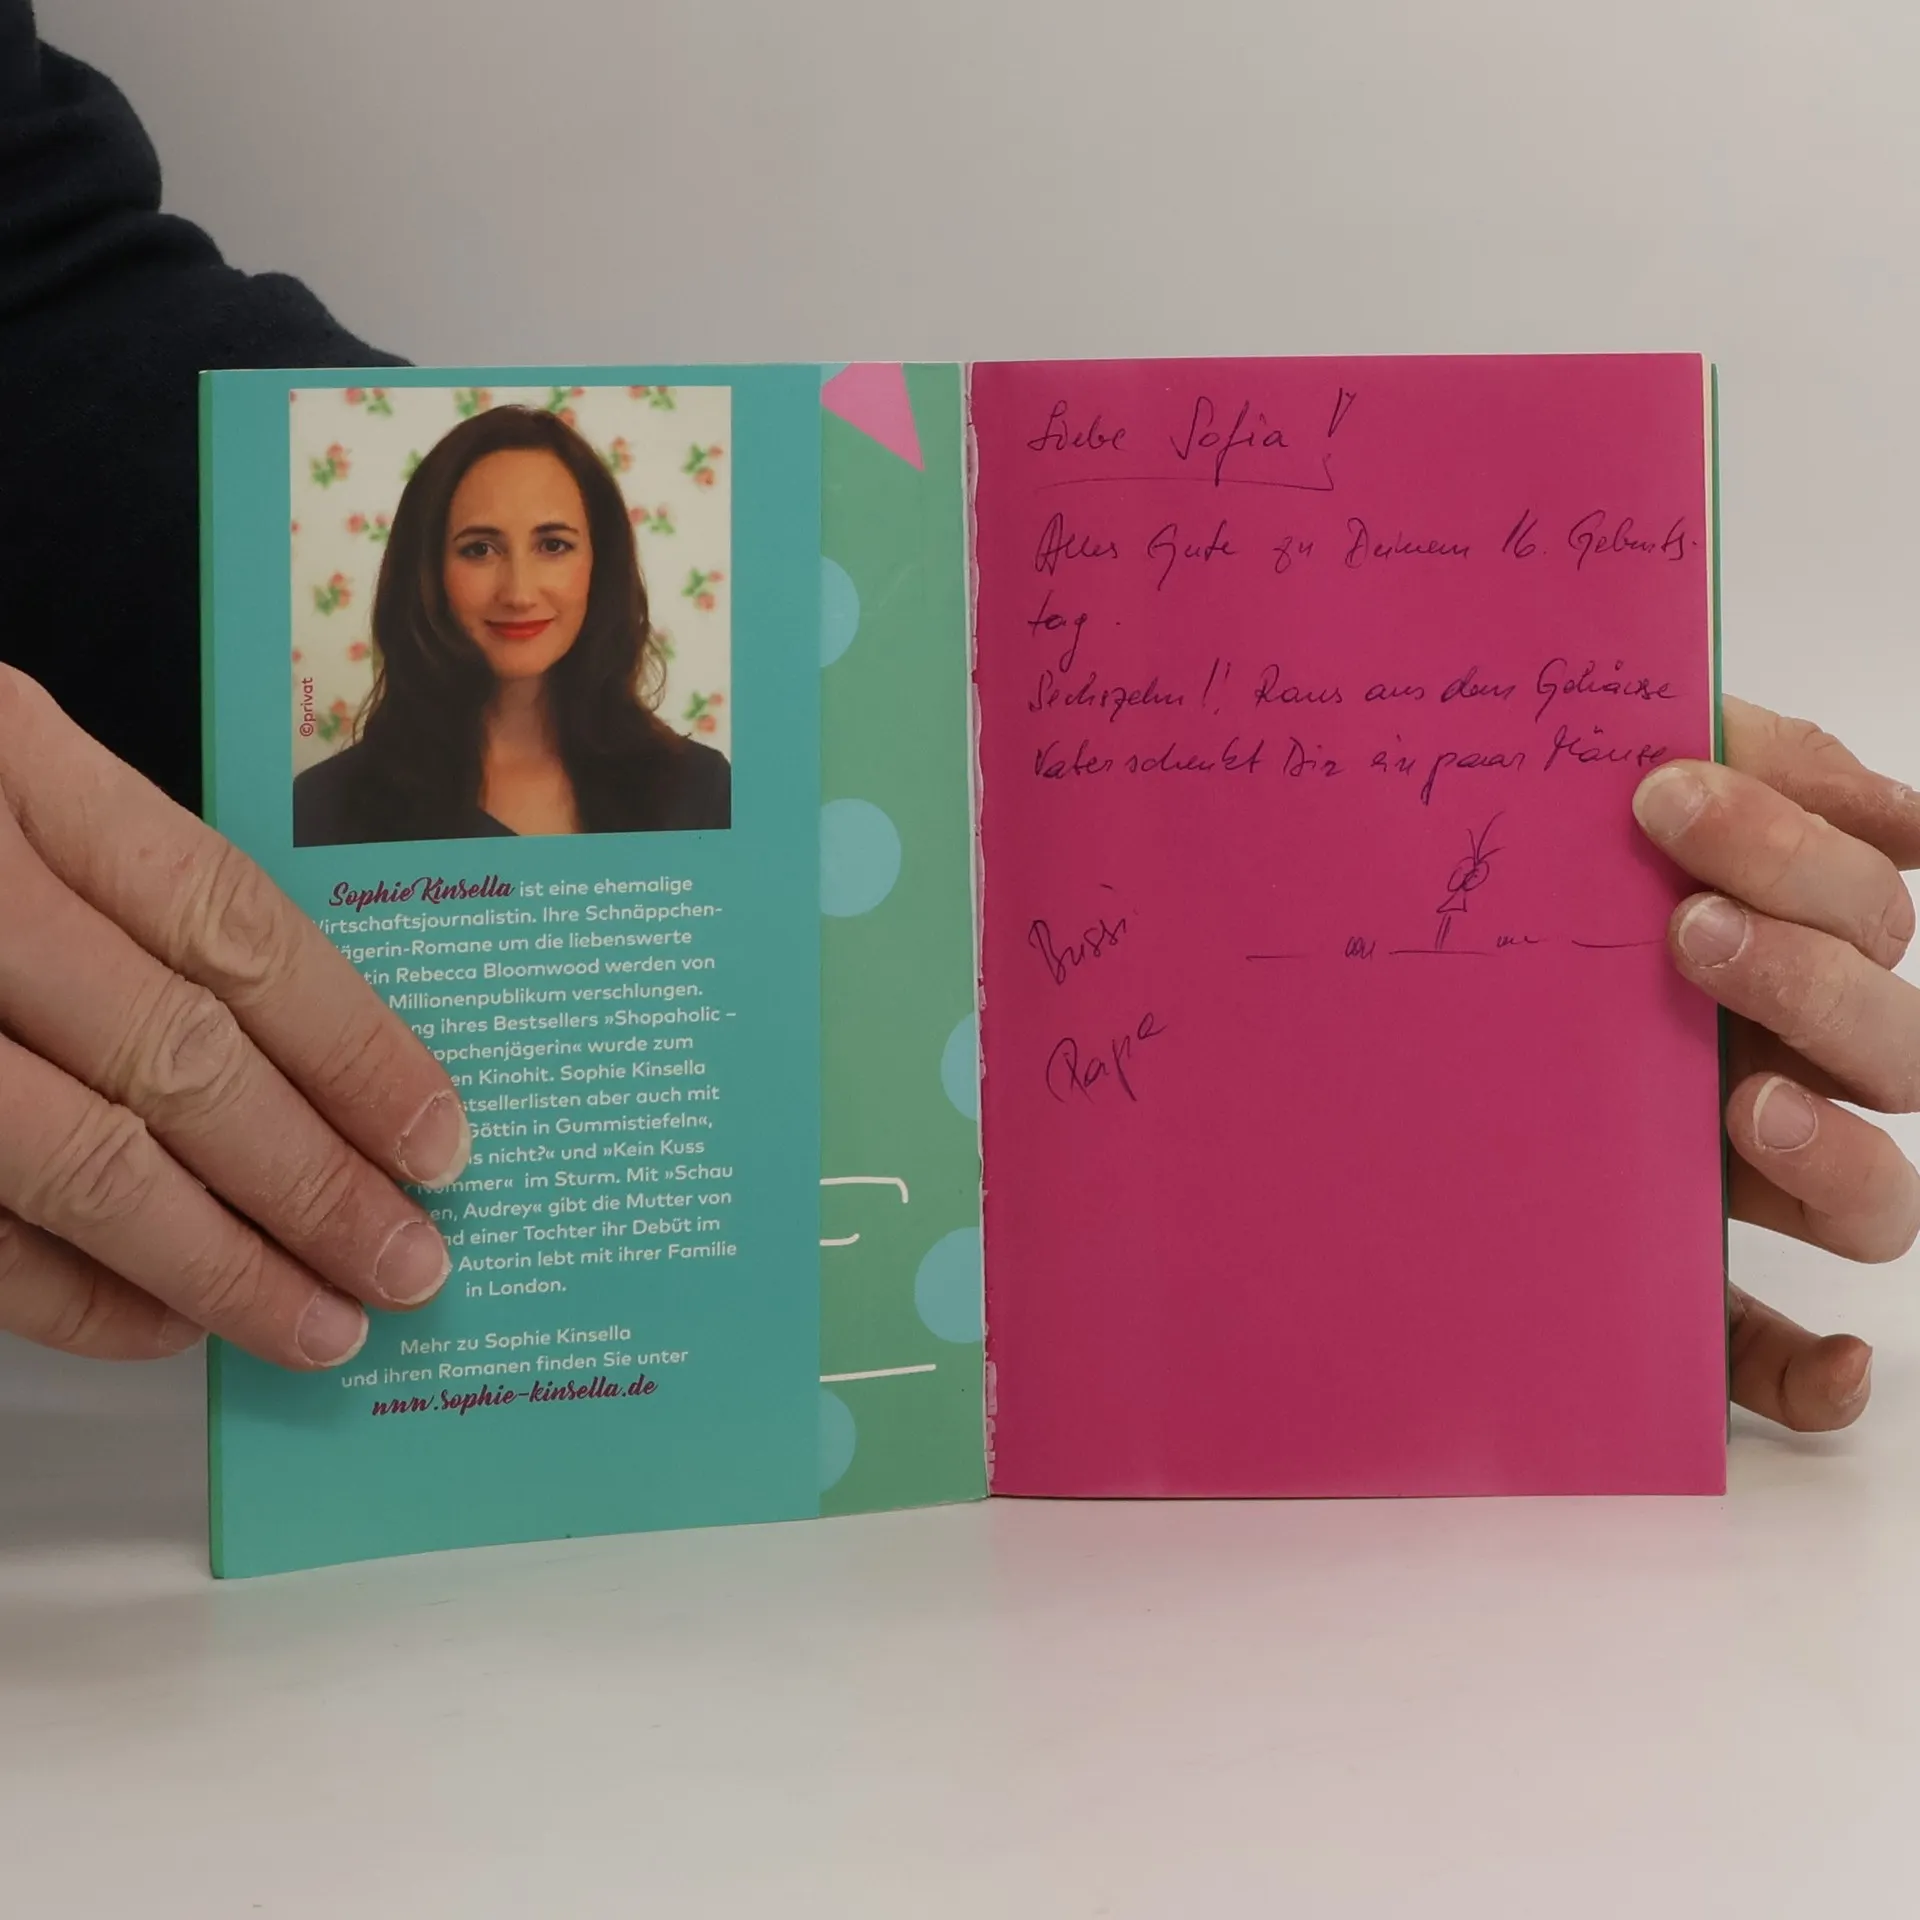 ©privat
Sophie Kinsella ist eine ehemalige
Wirtschaftsjournalistin. Ihre Schnäppchen-
jägerin-Romane um die liebenswerte
tin Rebecca Bloomwood werden von
Millionenpublikum verschlungen.
ng ihres Bestsellers »Shopaholic –
ppchenjägerin« wurde zum
en Kinohit. Sophie Kinsella
tsellerlisten aber auch mit
Göttin in Gummistiefeln«,
s nicht?« und »Kein Kuss
Nummer« im Sturm. Mit »Schau
en, Audrey« gibt die Mutter von
nd einer Tochter ihr Debüt im
Autorin lebt mit ihrer Familie
in London.
Mehr zu Sophie Kinsella
und ihren Romanen finden Sie unter
www.sophie-kinsella.de
Liebe Sofia!
Alles Gute zu Deinem 16. Geburts-
tag.
Sechszehn!! Raus aus dem Gehäuse
Vater schenkt Dir ein paar Mäuse
Bussi
Papa